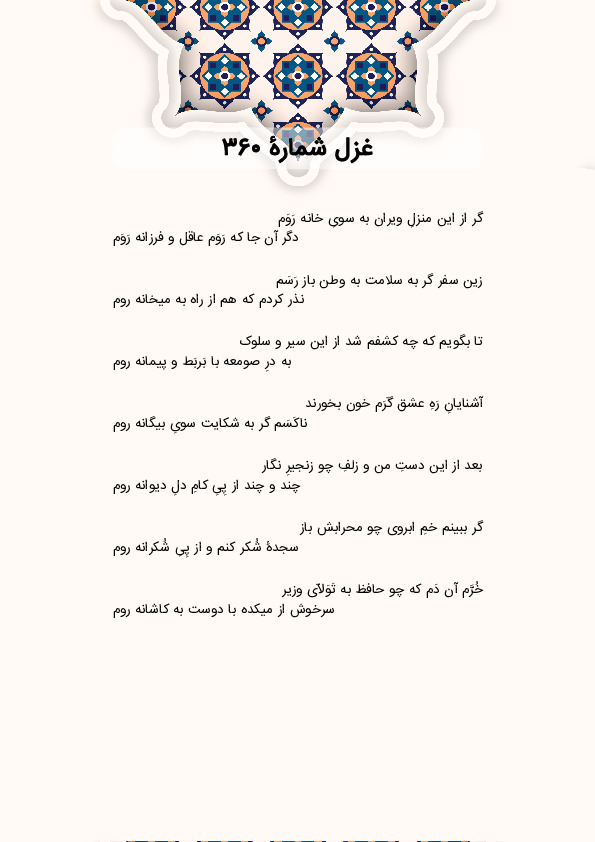 غزل شمارهٔ ۳۶۰
گر از این منزلِ ویران به سویِ خانه رَوَم
دگر آن جا که رَوَم عاقل و فرزانه رَوَم
زین سفر گر به سلامت به وطن باز رَسَم
نذر کردم که هم از راه به میخانه روم
تا بگویم که چه کشفم شد از این سیر و سلوک
به درِ صومعه با بَربَط و پیمانه روم
آشنایانِ رَهِ عشق گَرَم خون بخورند
ناکَسَم گر به شکایت سویِ بیگانه روم
بعد از این دستِ من و زلفِ چو زنجیرِ نگار
چند و چند از پِیِ کامِ دلِ دیوانه روم
گر ببینم خمِ ابروی چو محرابش باز
سجدهٔ شُکر کنم و از پِی شُکرانه روم
خُرَّم آن دَم که چو حافظ به تَوَلاّی وزیر
سرخوش از میکده با دوست به کاشانه روم